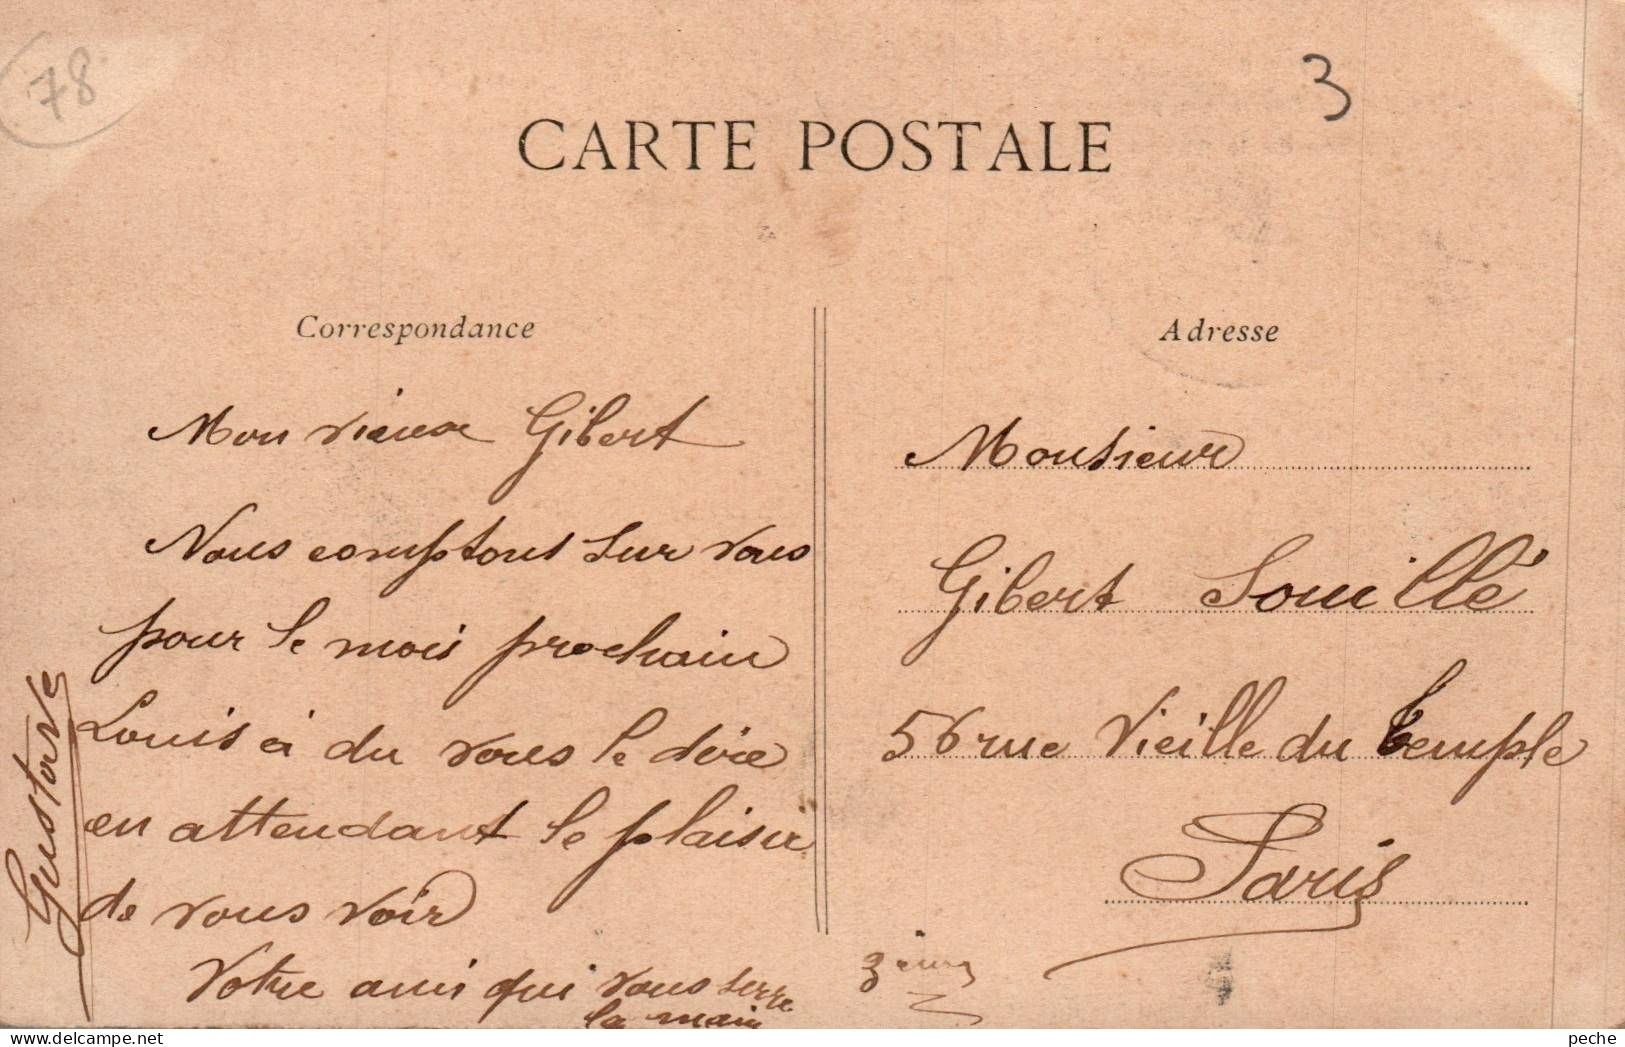 78
3
CARTE POSTALE
Correspondance
Mon vieux Gibert
Nous comptons sur vous
pour le mois prochain
Louis à du vous le dire
en attendant le plaisir
de vous voir
Votre ami qui vous serre
la main
Gustave
Adresse
Monsieur
Gibert Souillé
56 rue Vieille du Temple
Paris
3ème
peche